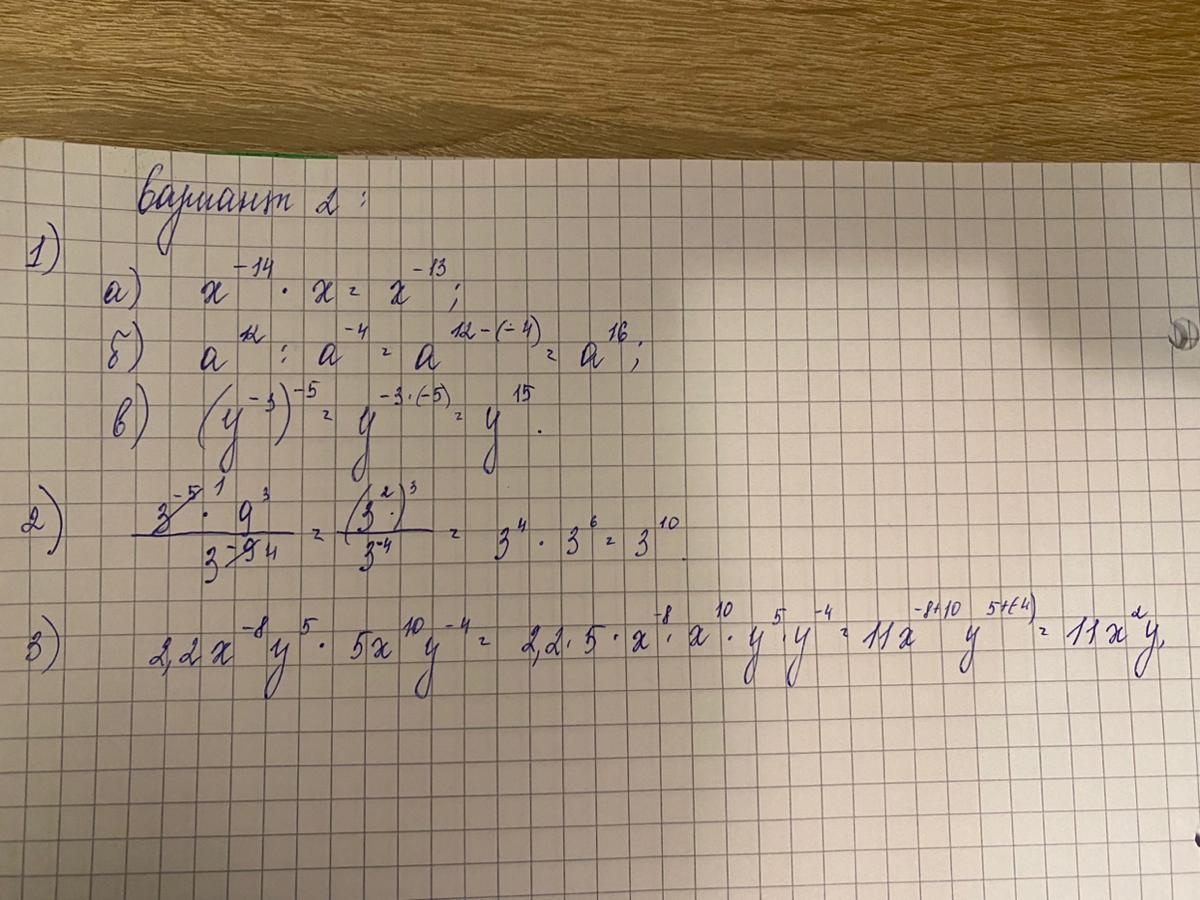 Вариант 2:
1)
а) x⁻¹⁴ · x = x⁻¹³;
б) a¹² : a⁻⁴ = a¹²⁻⁽⁻⁴⁾ = a¹⁶;
в) (y⁻³)⁻⁵ = y⁻³˙⁽⁻⁵⁾ = y¹⁵.
2) (3⁻⁵ ¹ · 9³)/(3⁻⁹ ⁴) = (3²)³/3⁻⁴ = 3⁴ · 3⁶ = 3¹⁰.
3) 2,2x⁻⁸y⁵ · 5x¹⁰y⁻⁴ = 2,2 · 5 · x⁻⁸ · x¹⁰ · y⁵ · y⁻⁴ = 11x⁻⁸⁺¹⁰ y⁵⁺⁽⁻⁴⁾ = 11x²y.